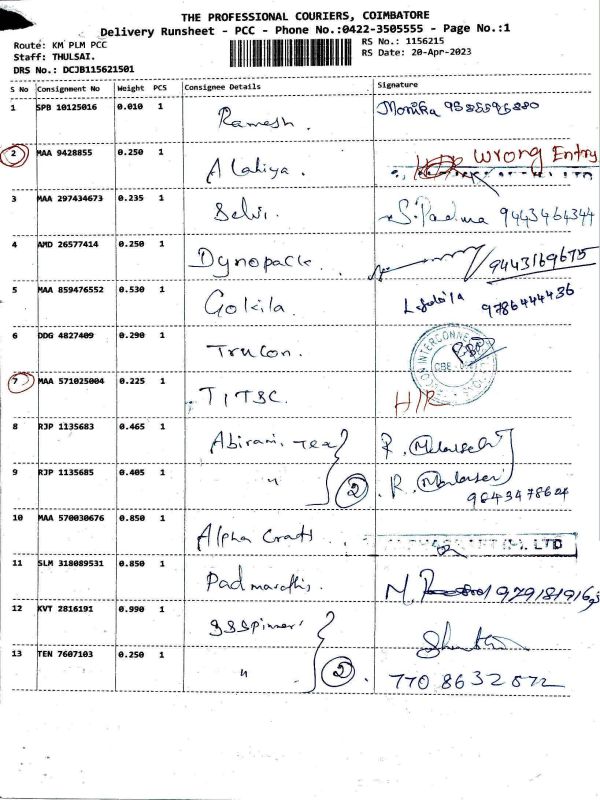 THE PROFESSIONAL COURIERS, COIMBATORE
Delivery Runsheet - PCC - Phone No.:0422-3505555 - Page No.:1
Route: KM PLM PCC
RS No.: 1156215
Staff: THULSAI.
RS Date: 20-Apr-2023
DRS No.: DCJB115621501
S No Consignment No Weight PCS Consignee Details Signature
1 SPB 10125016 0.010 1 Ramesh. Monika
2 MAA 9428855 0.250 1 Alahiya. Wrong Entry
3 MAA 297434673 0.235 1 Selvi. S. Padma 9443464344
4 AMD 26577414 0.250 1 Dynopack. 9443169675
5 MAA 859476552 0.530 1 Gokila. 9786444436
6 DDG 4827409 0.290 1 Trucon.
7 MAA 571025004 0.225 1 TITSC. H/R
8 RJP 1135683 0.465 1 Abirami Tex R.
9 RJP 1135685 0.405 1 " 2 R. 9843478624
10 MAA 570030676 0.850 1 Alpha Crafts LTD
11 SLM 318089531 0.850 1 M.
12 KVT 2816191 0.990 1
13 TEN 7607103 0.250 1 " 2 7708632572